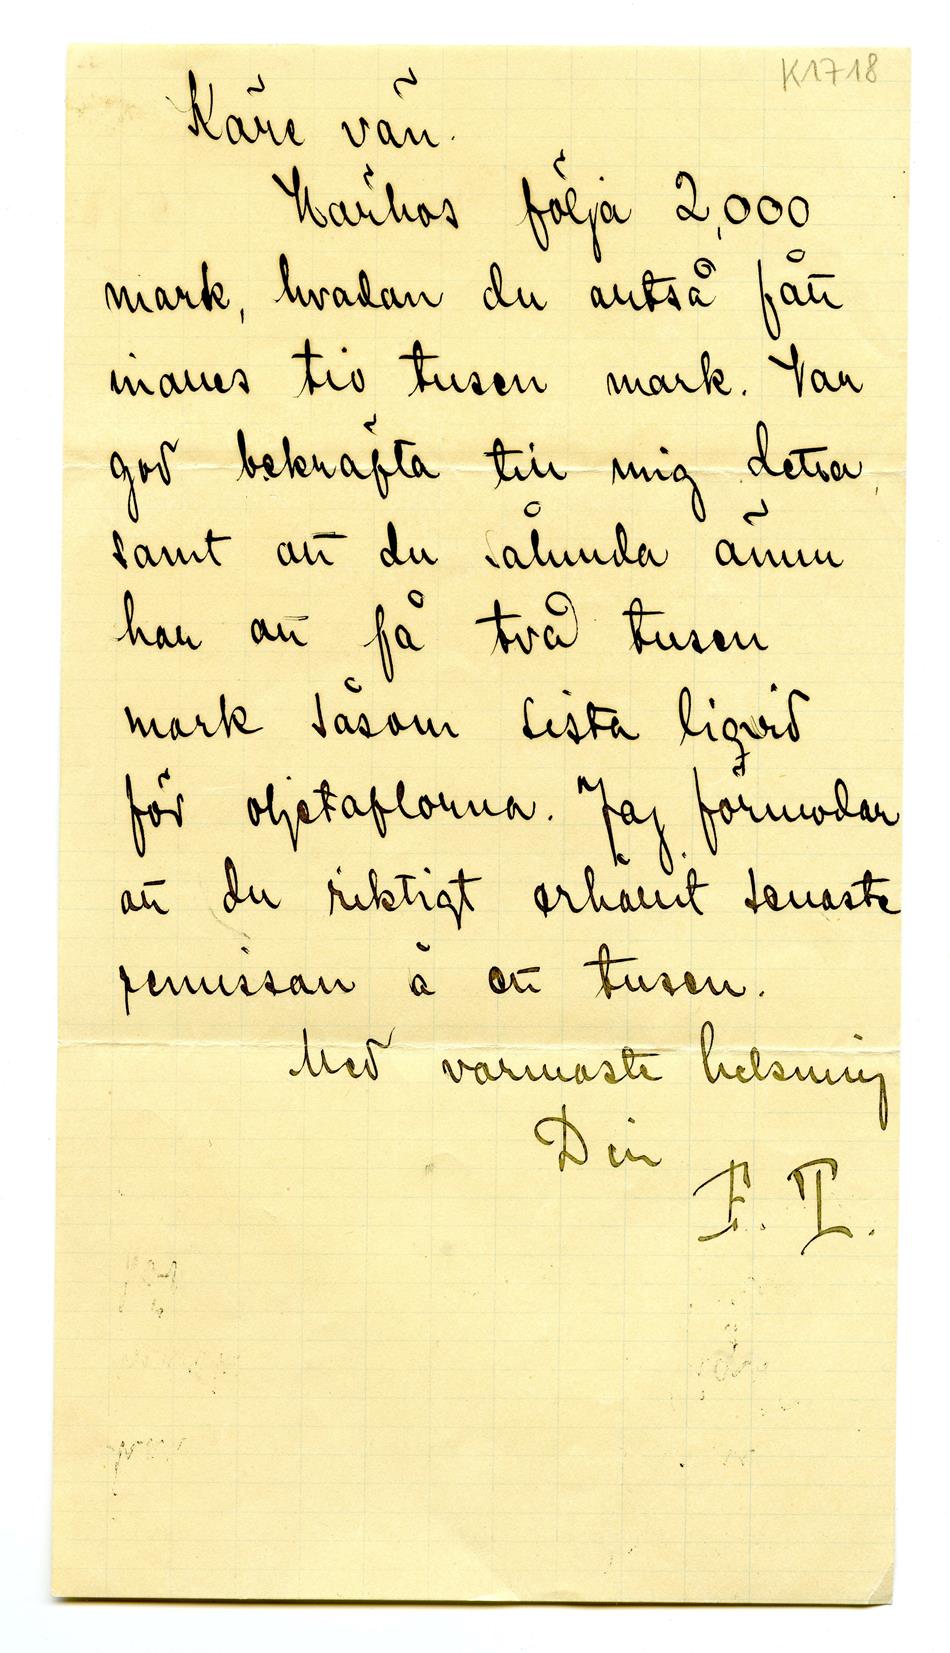 K1718
Käre vän.
Härhos följa 2,000
mark, hvadan du alltså fått
inalles tio tusen mark. Var
god bekräfta till mig detta,
samt att du sålunda ännu
har att få två tusen
mark såsom sista liqvid
för oljetaflorna. Jag förmodar
att du riktigt erhållit senaste
remissan à ett tusen.
Med varmaste helsning
Din
F. T.